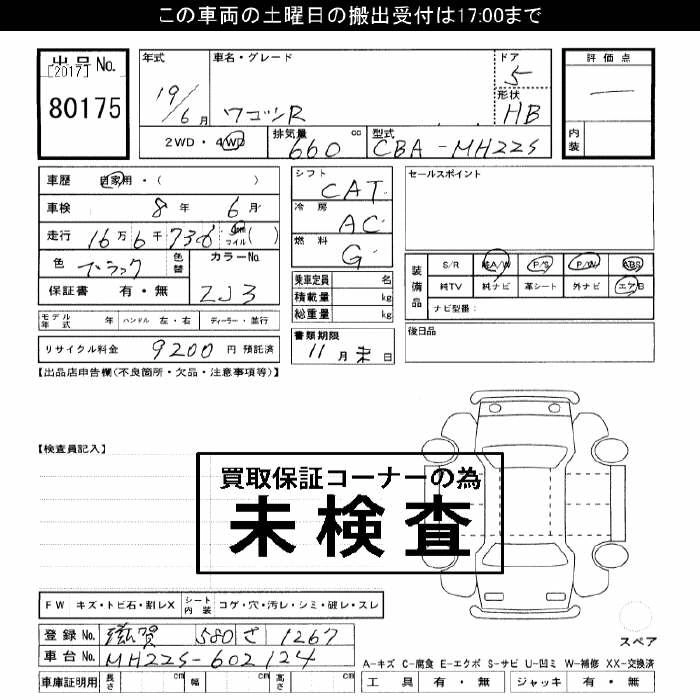 この車両の土曜日の搬出受付は17:00まで
出品No.
[2017]
80175
年式
19/6月
車名・グレード
ワゴンR
ドア
5
形状
HB
2WD・4WD
排気量
660 cc
型式
CBA-MH22S
評価点
―
内装
車歴 自家用・( )
車検 8年 6月
走行 16万6千736 km マイル ( )
色 ブラック
色替
カラーNo.
ZJ3
保証書 有・無
モデル年式 年
ハンドル 左・右
ディーラー・並行
リサイクル料金 9200 円 預託済
シフト
CAT
冷房
AC
燃料
G
乗車定員 名
積載量 kg
総重量 kg
書類期限
11月末日
セールスポイント
装備品
S/R 純A/W P/S P/W ABS
純TV 純ナビ 革シート 外ナビ エアB
ナビ型番:
後日品
【出品店申告欄(不良箇所・欠品・注意事項等)】
【検査員記入】
買取保証コーナーの為
未検査
FW キズ・トビ石・割レX
シート内装
コゲ・穴・汚レ・シミ・破レ・スレ
登録No. 滋賀 580 さ 1267
車台No. MH22S-602124
車庫証明用 長さ cm 幅 cm 高さ cm
スペア
A-キズ C-腐食 E-エクボ S-サビ U-凹ミ W-補修 XX-交換済
工具 有・無 ジャッキ 有・無